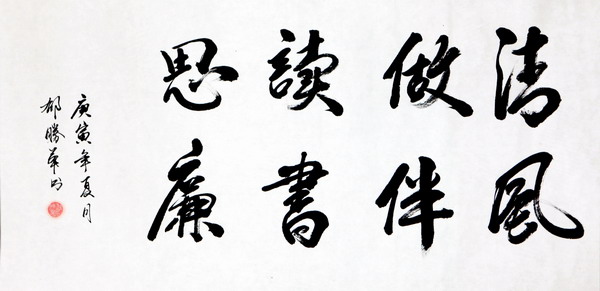 清風
做伴
讀書
思廉
庚寅年夏月
郁勝華